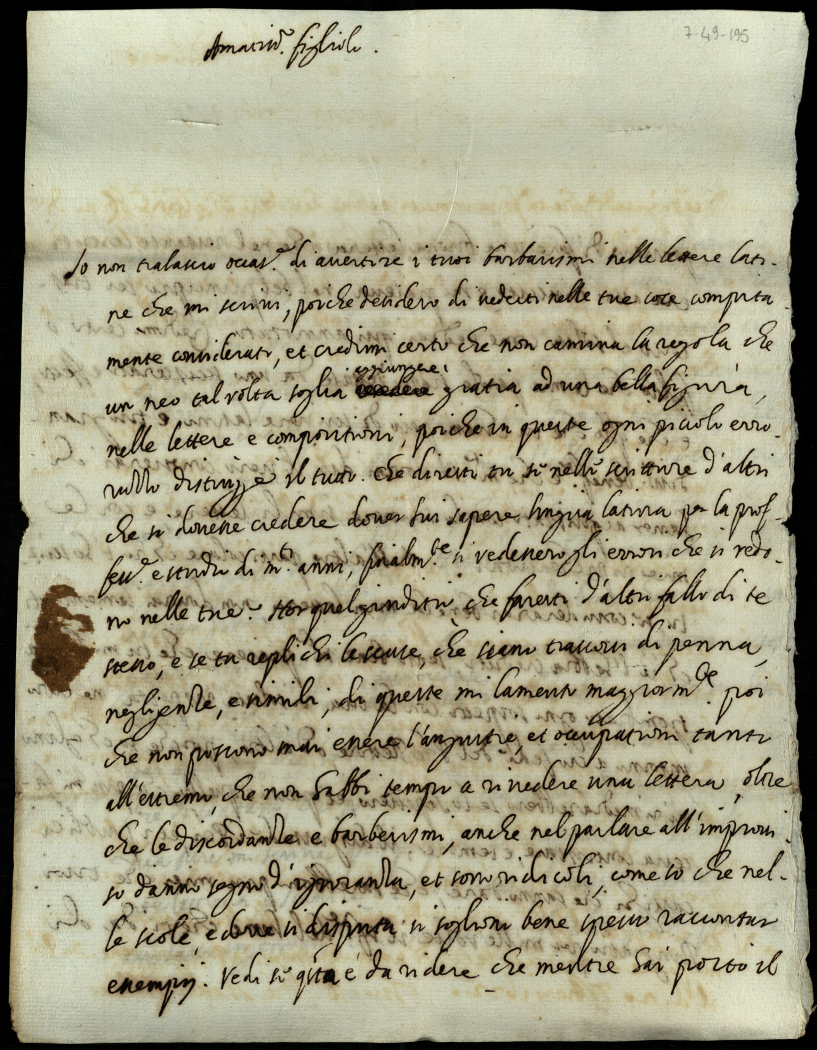 7-49-195
Amatiss.º figliolo.
Io non tralascio occas.e di avertire i tuoi barbarismi nelle lettere lati-
ne che mi scrivi, poiche desidero di vederti nelle tue cose compita-
mente considerato, et credimi certo che non camina la regola che
un neo tal volta soglia aggiungere gratia ad una bella figura,
nelle lettere e compositioni, poiche in queste ogni piccolo erro-
ruzzo distrugge il tutto. Che diresti tu se nelle scritture d'altri
che si dovesse credere dover lui sapere lingua latina per la prof-
fess.e e studio di m.ti anni, finalm.te si vedessero gli errori che si vedo-
no nelle tue? quel giuditio che faresti d'altri fallo di te
stesso, e se tu replichi le scuse che siano trascorsi di penna,
negligenze, e simili, di queste mi lamento maggiorm.te poi
che non possono mai essere l'angustie, et occupationi tanto
all'estremo, che non habbi tempo a rivedere una lettera, oltre
che le discordanze e barberismi, anche nel parlare all'improvi-
so danno segno d'ignoranza, et sono ridicoli, come so che nel-
le scole, e dove si disputa si soglione bene spesso raccontar
essempij. Vedi se q.sta è da ridere che mentre hai posto il